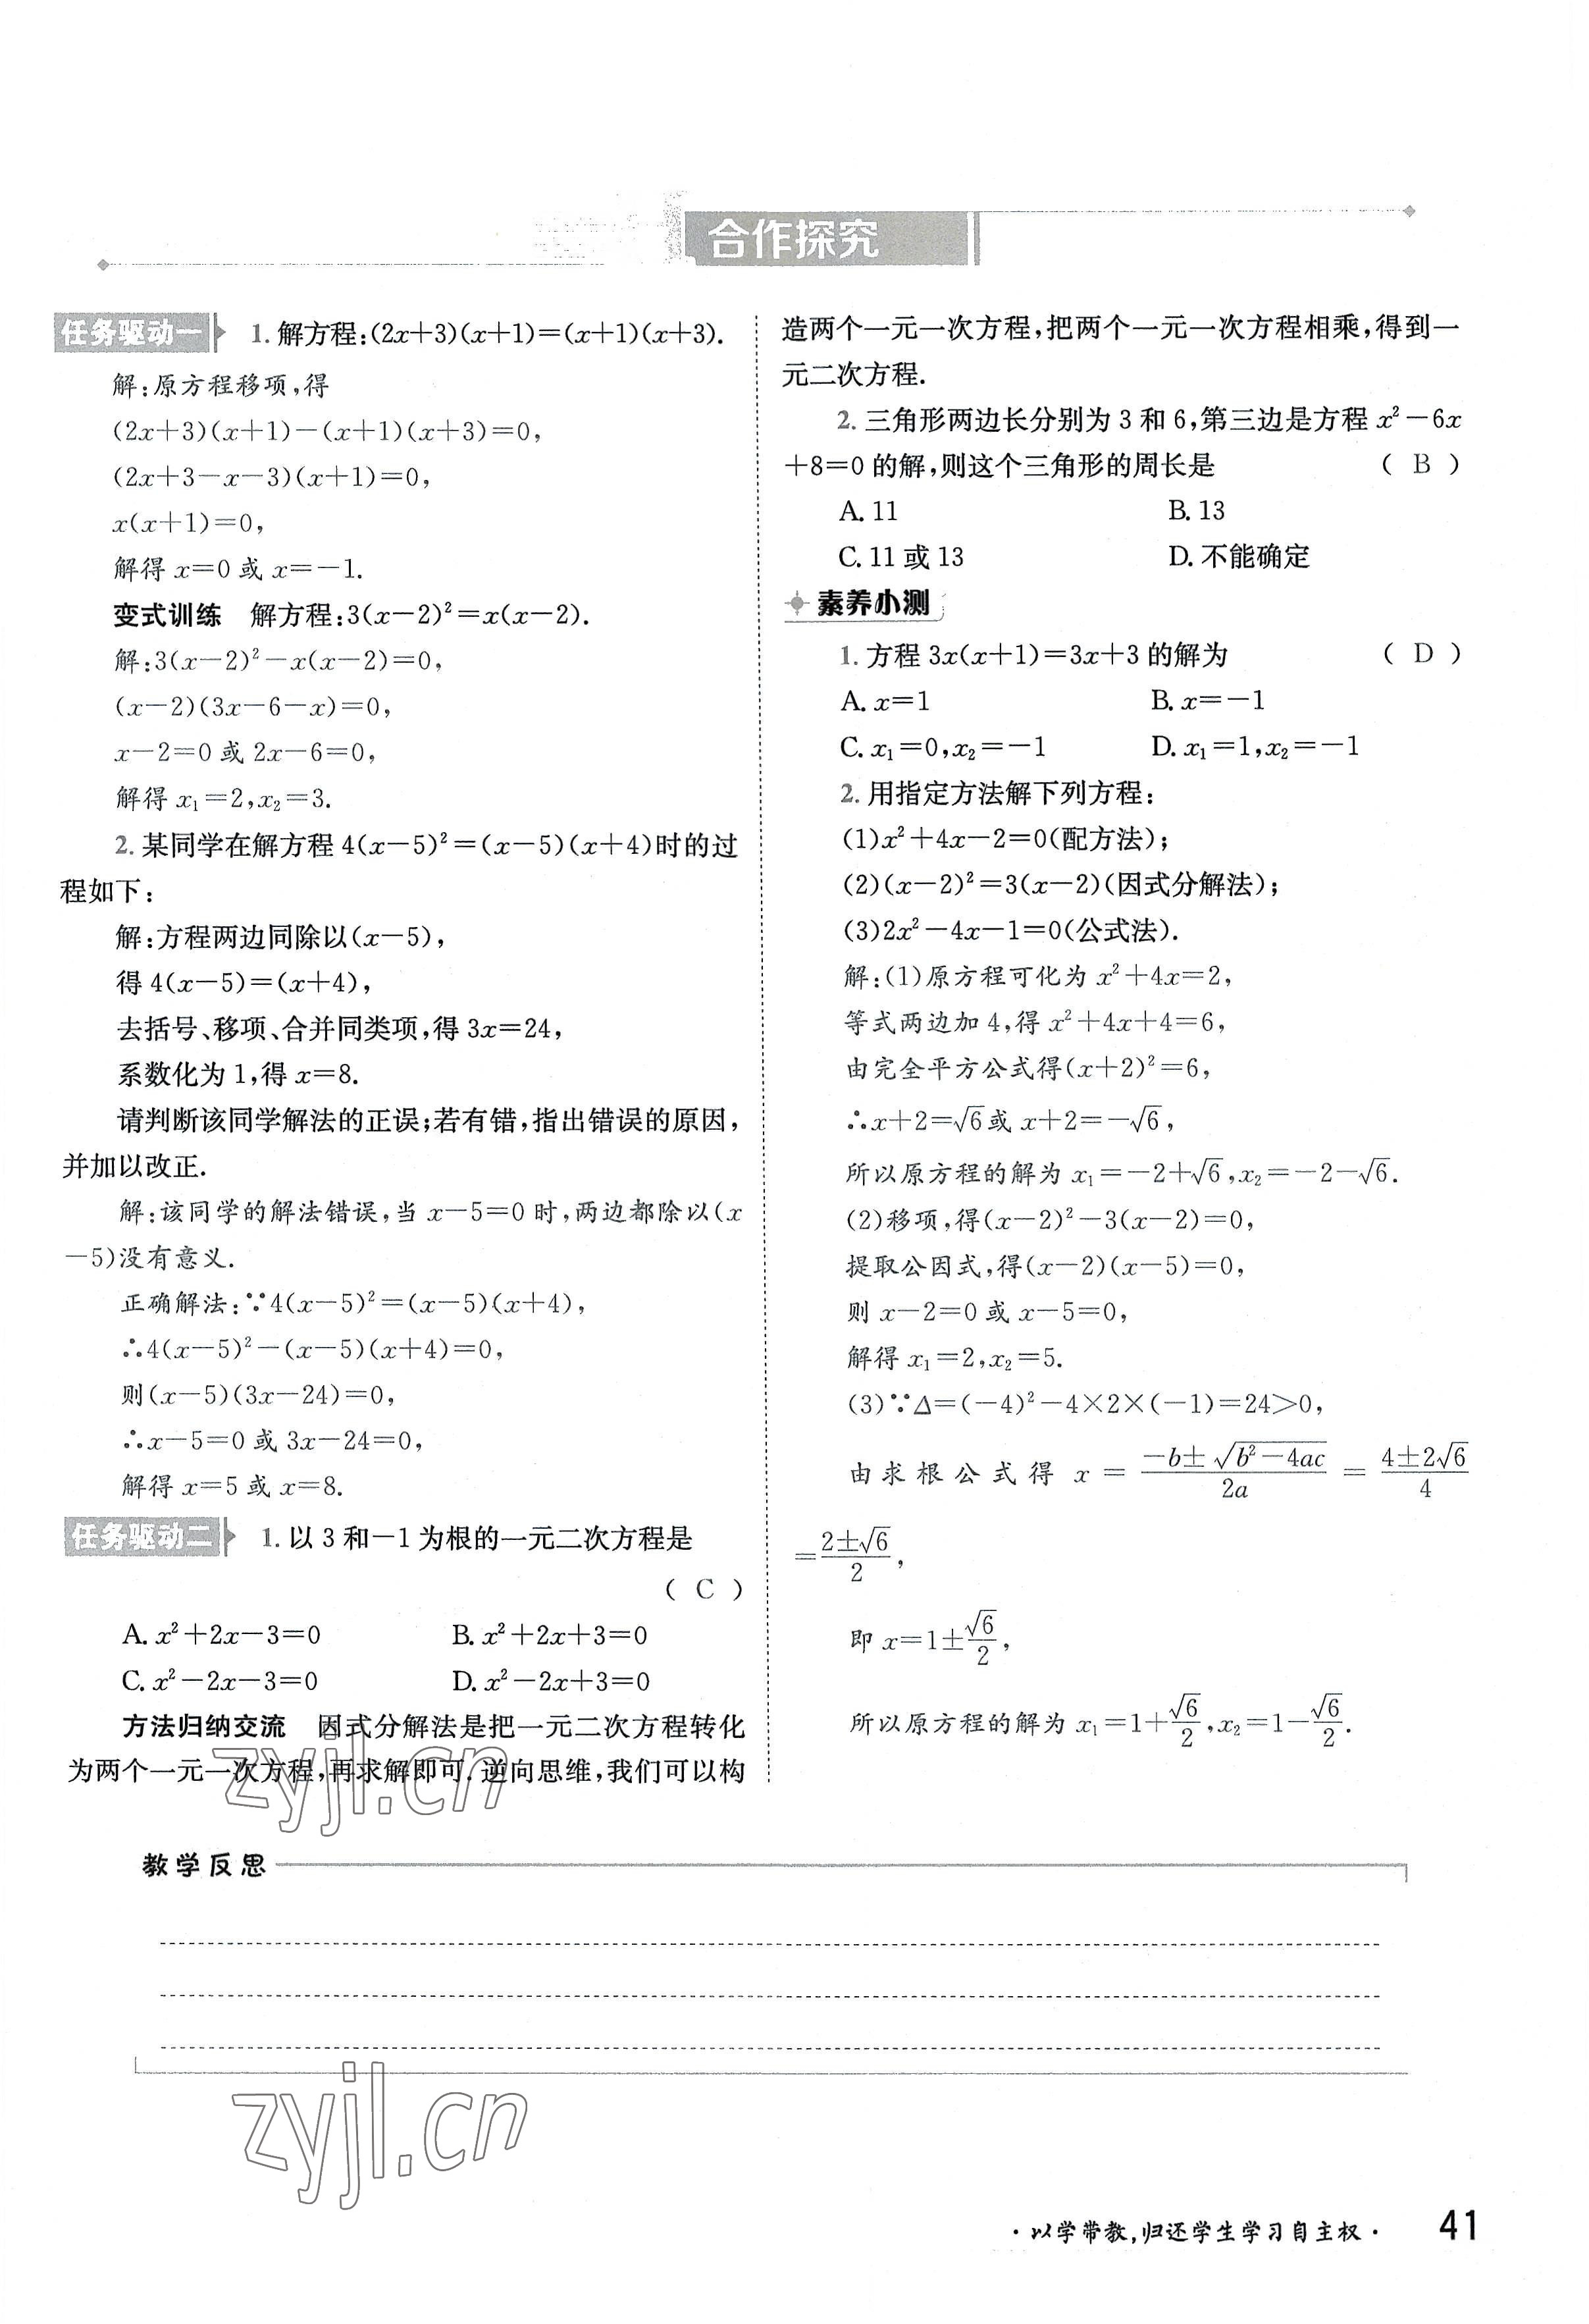 合作探究
任务驱动一 1. 解方程:(2x+3)(x+1)=(x+1)(x+3).
解:原方程移项,得
(2x+3)(x+1)-(x+1)(x+3)=0,
(2x+3-x-3)(x+1)=0,
x(x+1)=0,
解得 x=0 或 x=-1.
变式训练 解方程:3(x-2)²=x(x-2).
解:3(x-2)²-x(x-2)=0,
(x-2)(3x-6-x)=0,
x-2=0 或 2x-6=0,
解得 x₁=2,x₂=3.
2. 某同学在解方程 4(x-5)²=(x-5)(x+4)时的过
程如下:
解:方程两边同除以(x-5),
得 4(x-5)=(x+4),
去括号、移项、合并同类项,得 3x=24,
系数化为 1,得 x=8.
请判断该同学解法的正误;若有错,指出错误的原因,
并加以改正.
解:该同学的解法错误,当 x-5=0 时,两边都除以(x
-5)没有意义.
正确解法:∵4(x-5)²=(x-5)(x+4),
∴4(x-5)²-(x-5)(x+4)=0,
则(x-5)(3x-24)=0,
∴x-5=0 或 3x-24=0,
解得 x=5 或 x=8.
任务驱动二 1. 以 3 和-1 为根的一元二次方程是
( C )
A. x²+2x-3=0 B. x²+2x+3=0
C. x²-2x-3=0 D. x²-2x+3=0
方法归纳交流 因式分解法是把一元二次方程转化
为两个一元一次方程,再求解即可. 逆向思维,我们可以构
造两个一元一次方程,把两个一元一次方程相乘,得到一
元二次方程.
2. 三角形两边长分别为 3 和 6,第三边是方程 x²-6x
+8=0 的解,则这个三角形的周长是 ( B )
A. 11 B. 13
C. 11 或 13 D. 不能确定
素养小测
1. 方程 3x(x+1)=3x+3 的解为 ( D )
A. x=1 B. x=-1
C. x₁=0,x₂=-1 D. x₁=1,x₂=-1
2. 用指定方法解下列方程:
(1)x²+4x-2=0(配方法);
(2)(x-2)²=3(x-2)(因式分解法);
(3)2x²-4x-1=0(公式法).
解:(1)原方程可化为 x²+4x=2,
等式两边加 4,得 x²+4x+4=6,
由完全平方公式得(x+2)²=6,
∴x+2=√6或 x+2=-√6,
所以原方程的解为 x₁=-2+√6,x₂=-2-√6.
(2)移项,得(x-2)²-3(x-2)=0,
提取公因式,得(x-2)(x-5)=0,
则 x-2=0 或 x-5=0,
解得 x₁=2,x₂=5.
(3)∵Δ=(-4)²-4×2×(-1)=24>0,
由求根公式得 x = (-b±√(b²-4ac))/2a = (4±2√6)/4
=(2±√6)/2,
即 x=1±√6/2,
所以原方程的解为 x₁=1+√6/2,x₂=1-√6/2.
zyjl.cn
教学反思
zyjl.cn
·以学带教,归还学生学习自主权· 41